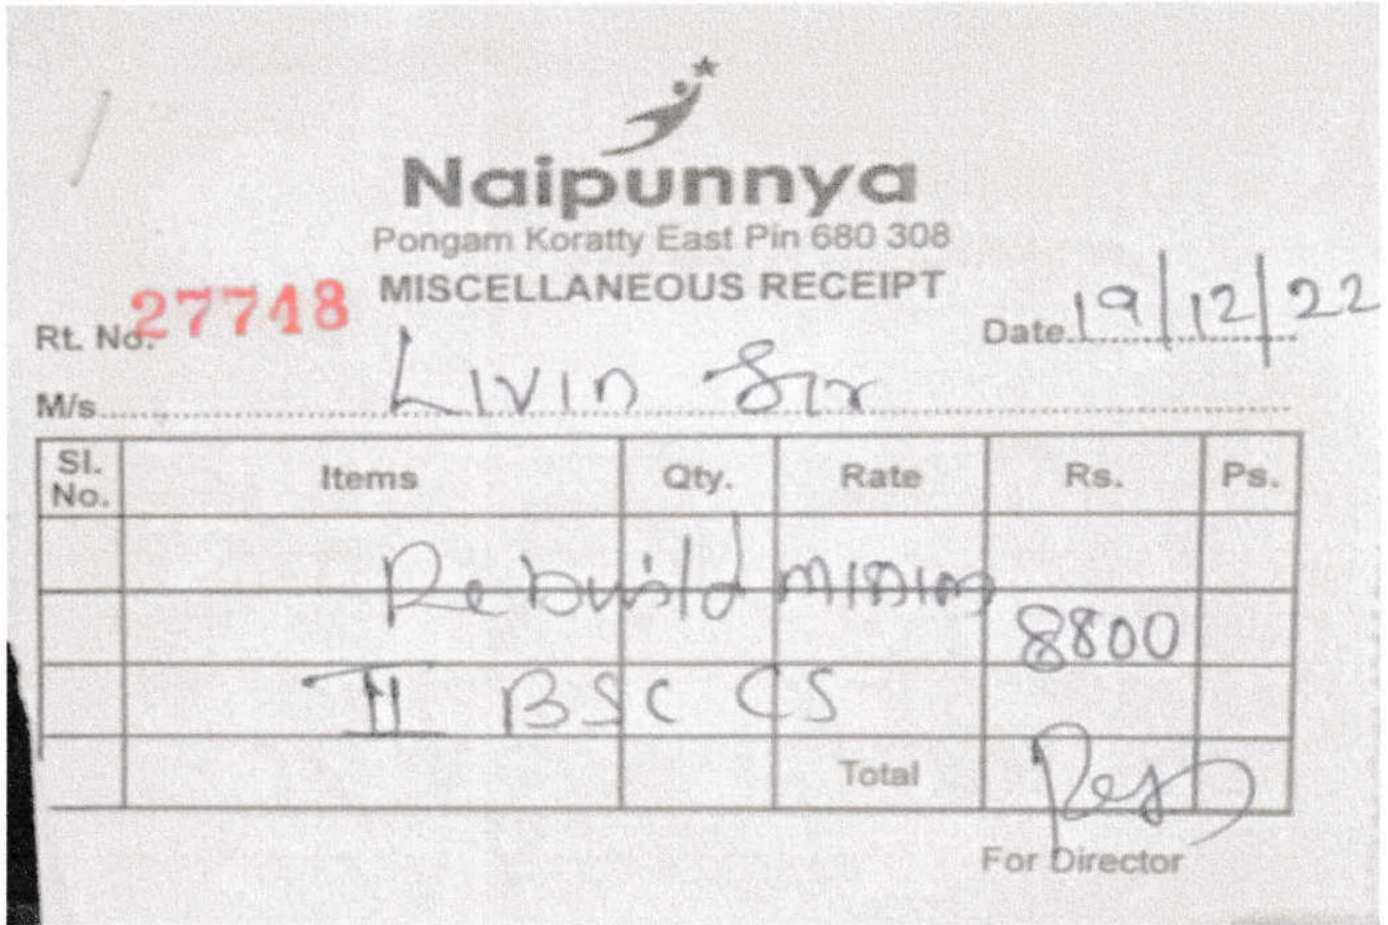 Naipunnya
Pongam Koratty East Pin 680 308
MISCELLANEOUS RECEIPT
Rt. No. 27748
Date 19/12/22
M/s Livin Sir
Sl. No. Items Qty. Rate Rs. Ps.
Rebuild
8800
II BSC CS
Total
For Director